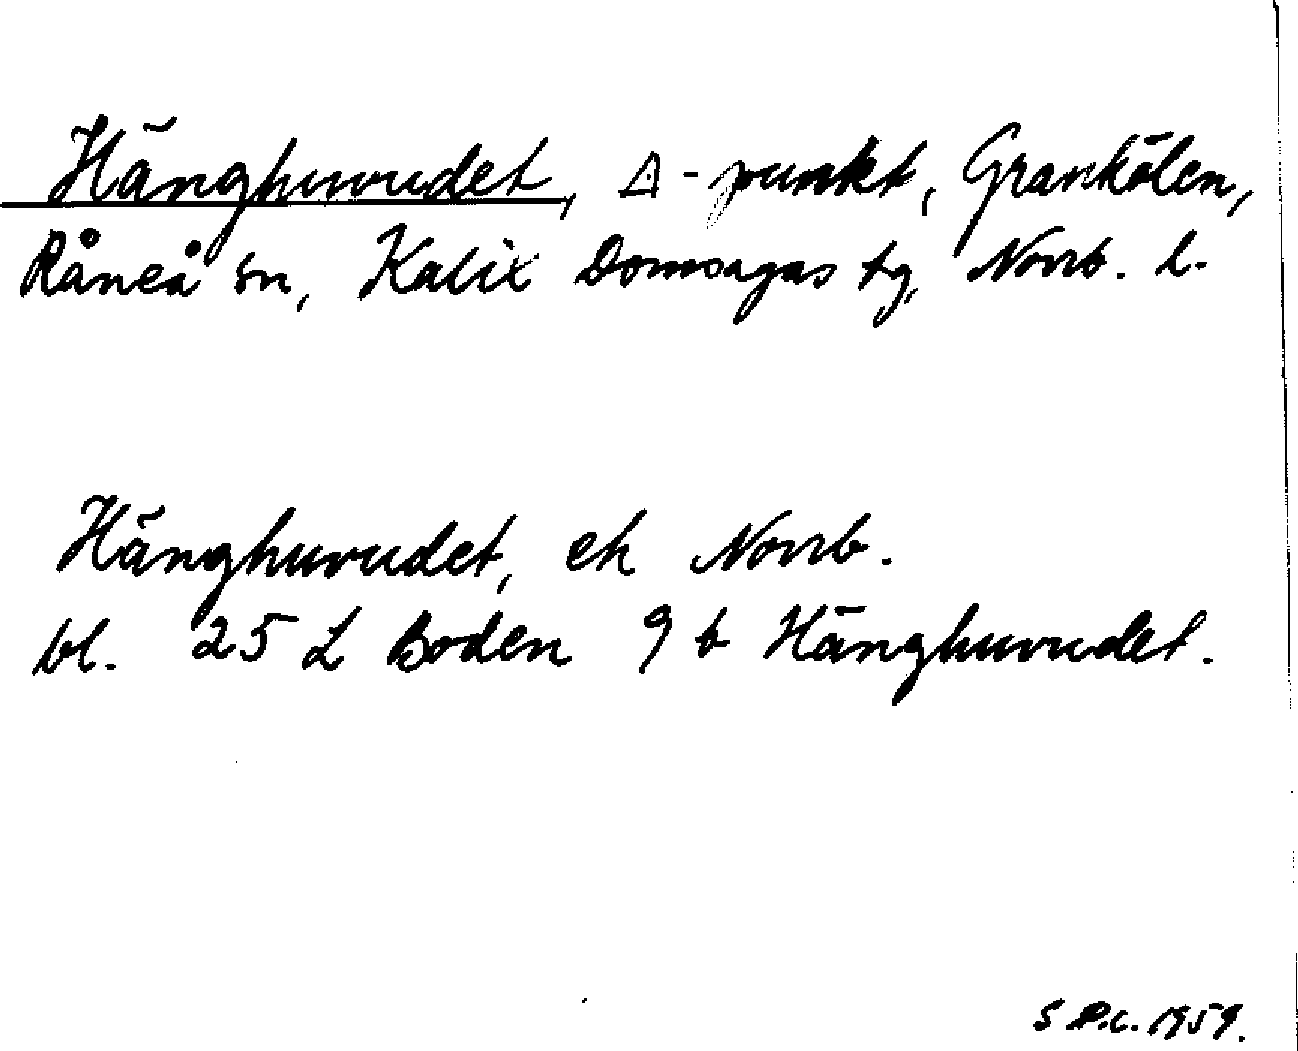 Hänghuvudet, △-punkt, Grankölen,
Råneå sn, Kalix Domsagas tg, Norrb. l.
Hänghuvudet, ek Norrb.
bl. 25 L Boden 9 b Hänghuvudet.
S.P.C. 1959.